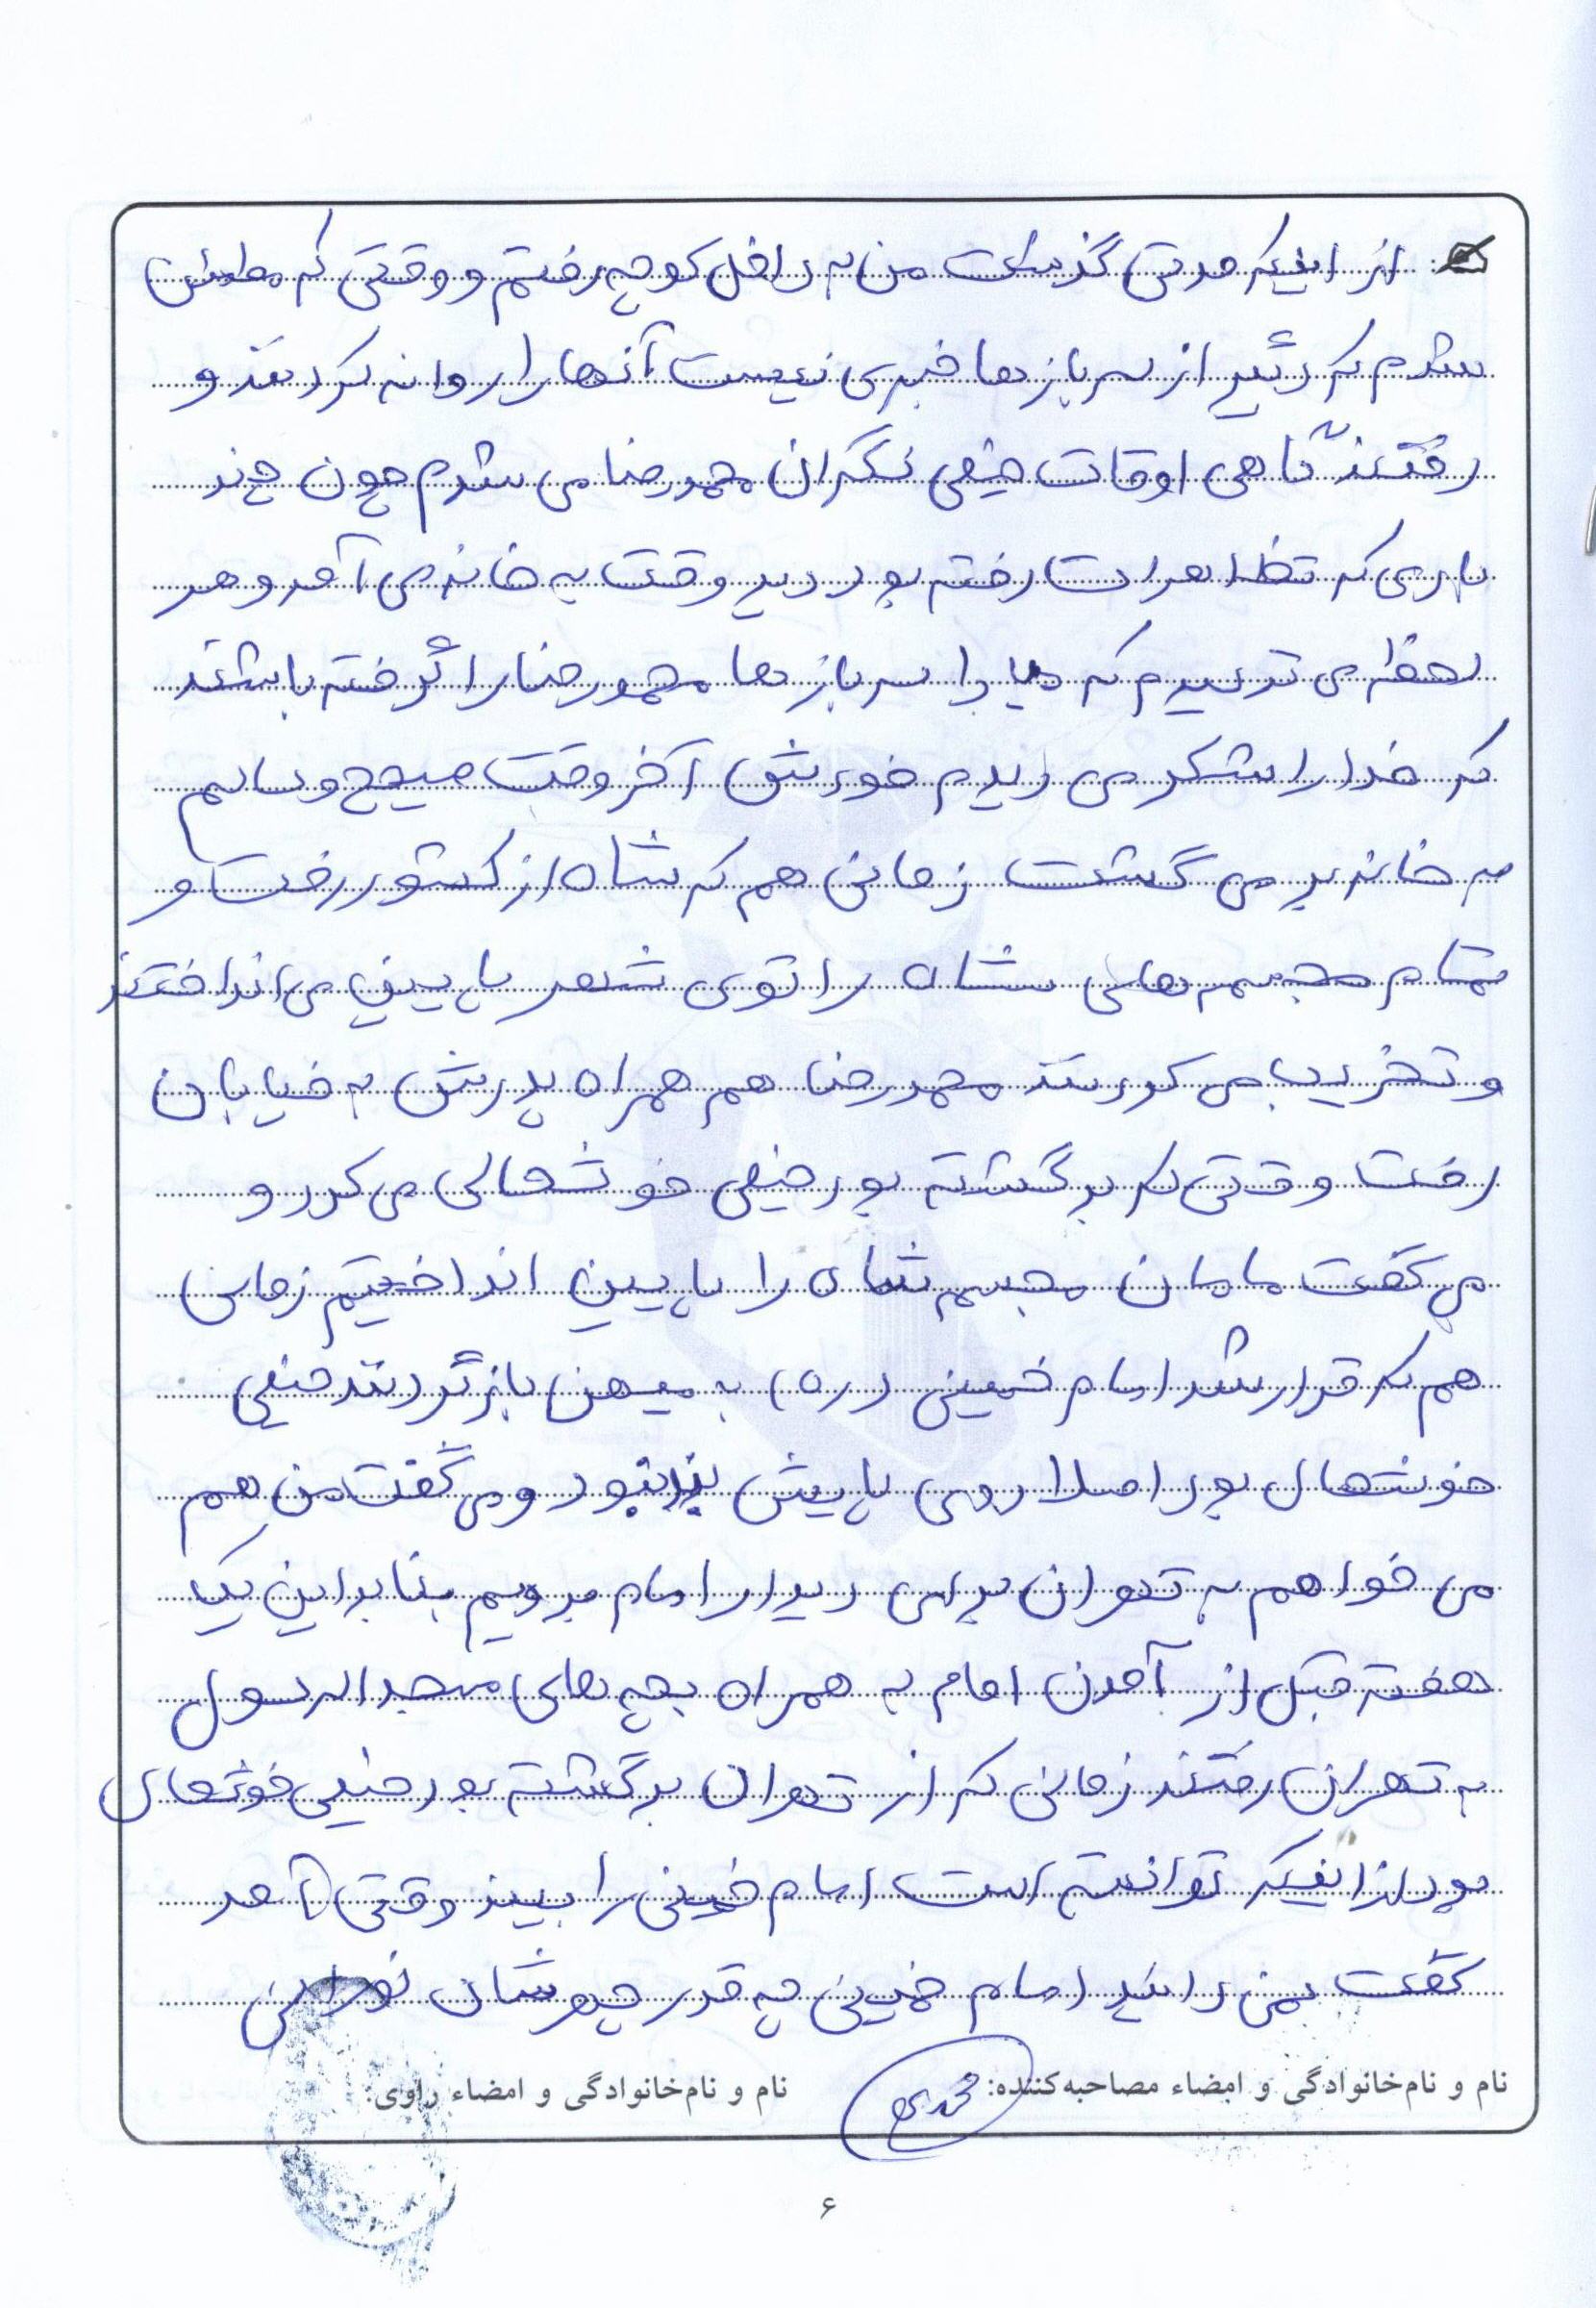 از اینکه مدتی گذشت من به داخل کوچه رفتم و وقتی که مطمئن
شدم که دیگر از سرباز ها خبری نیست آنها را روانه کردند و
رفتند گاهی اوقات خیلی نگران محمدرضا می شدم چون چند
باری که تظاهرات رفته بود دیر وقت به خانه می آمد و هر
لحظه می ترسیدم که مبادا سرباز ها محمدرضا را گرفته باشند
که خدا را شکر می دیدم خودش آخر وقت صحیح و سالم
به خانه بر می گشت زمانی هم که شاه از کشور رفت و
تمام مجسمه های شاه را توی شهر پایین می انداختند
و تخریب می کردند محمدرضا هم همراه پدرش به خیابان
رفت وقتی که برگشته بود خیلی خوشحالی می کرد و
می گفت مامان مجسمه شاه را پایین انداختیم زمانی
هم که قرار شد امام خمینی (ره) به میهن بازگردند خیلی
خوشحال بود اصلا روی پایش بند نبود و می گفت من هم
می خواهم به تهران برای دیدار امام برویم بنابراین یک
هفته قبل از آمدن امام به همراه بچه های مسجد الرسول
به تهران رفتند زمانی که از تهران برگشته بود خیلی خوشحال
بود از اینکه توانسته است امام خمینی را ببیند وقتی آمد
گفت نمی دانید امام خمینی چه قدر چهره شان نورانی
نام و نام‌خانوادگی و امضاء مصاحبه‌کننده: نام و نام‌خانوادگی و امضاء راوی:
۶